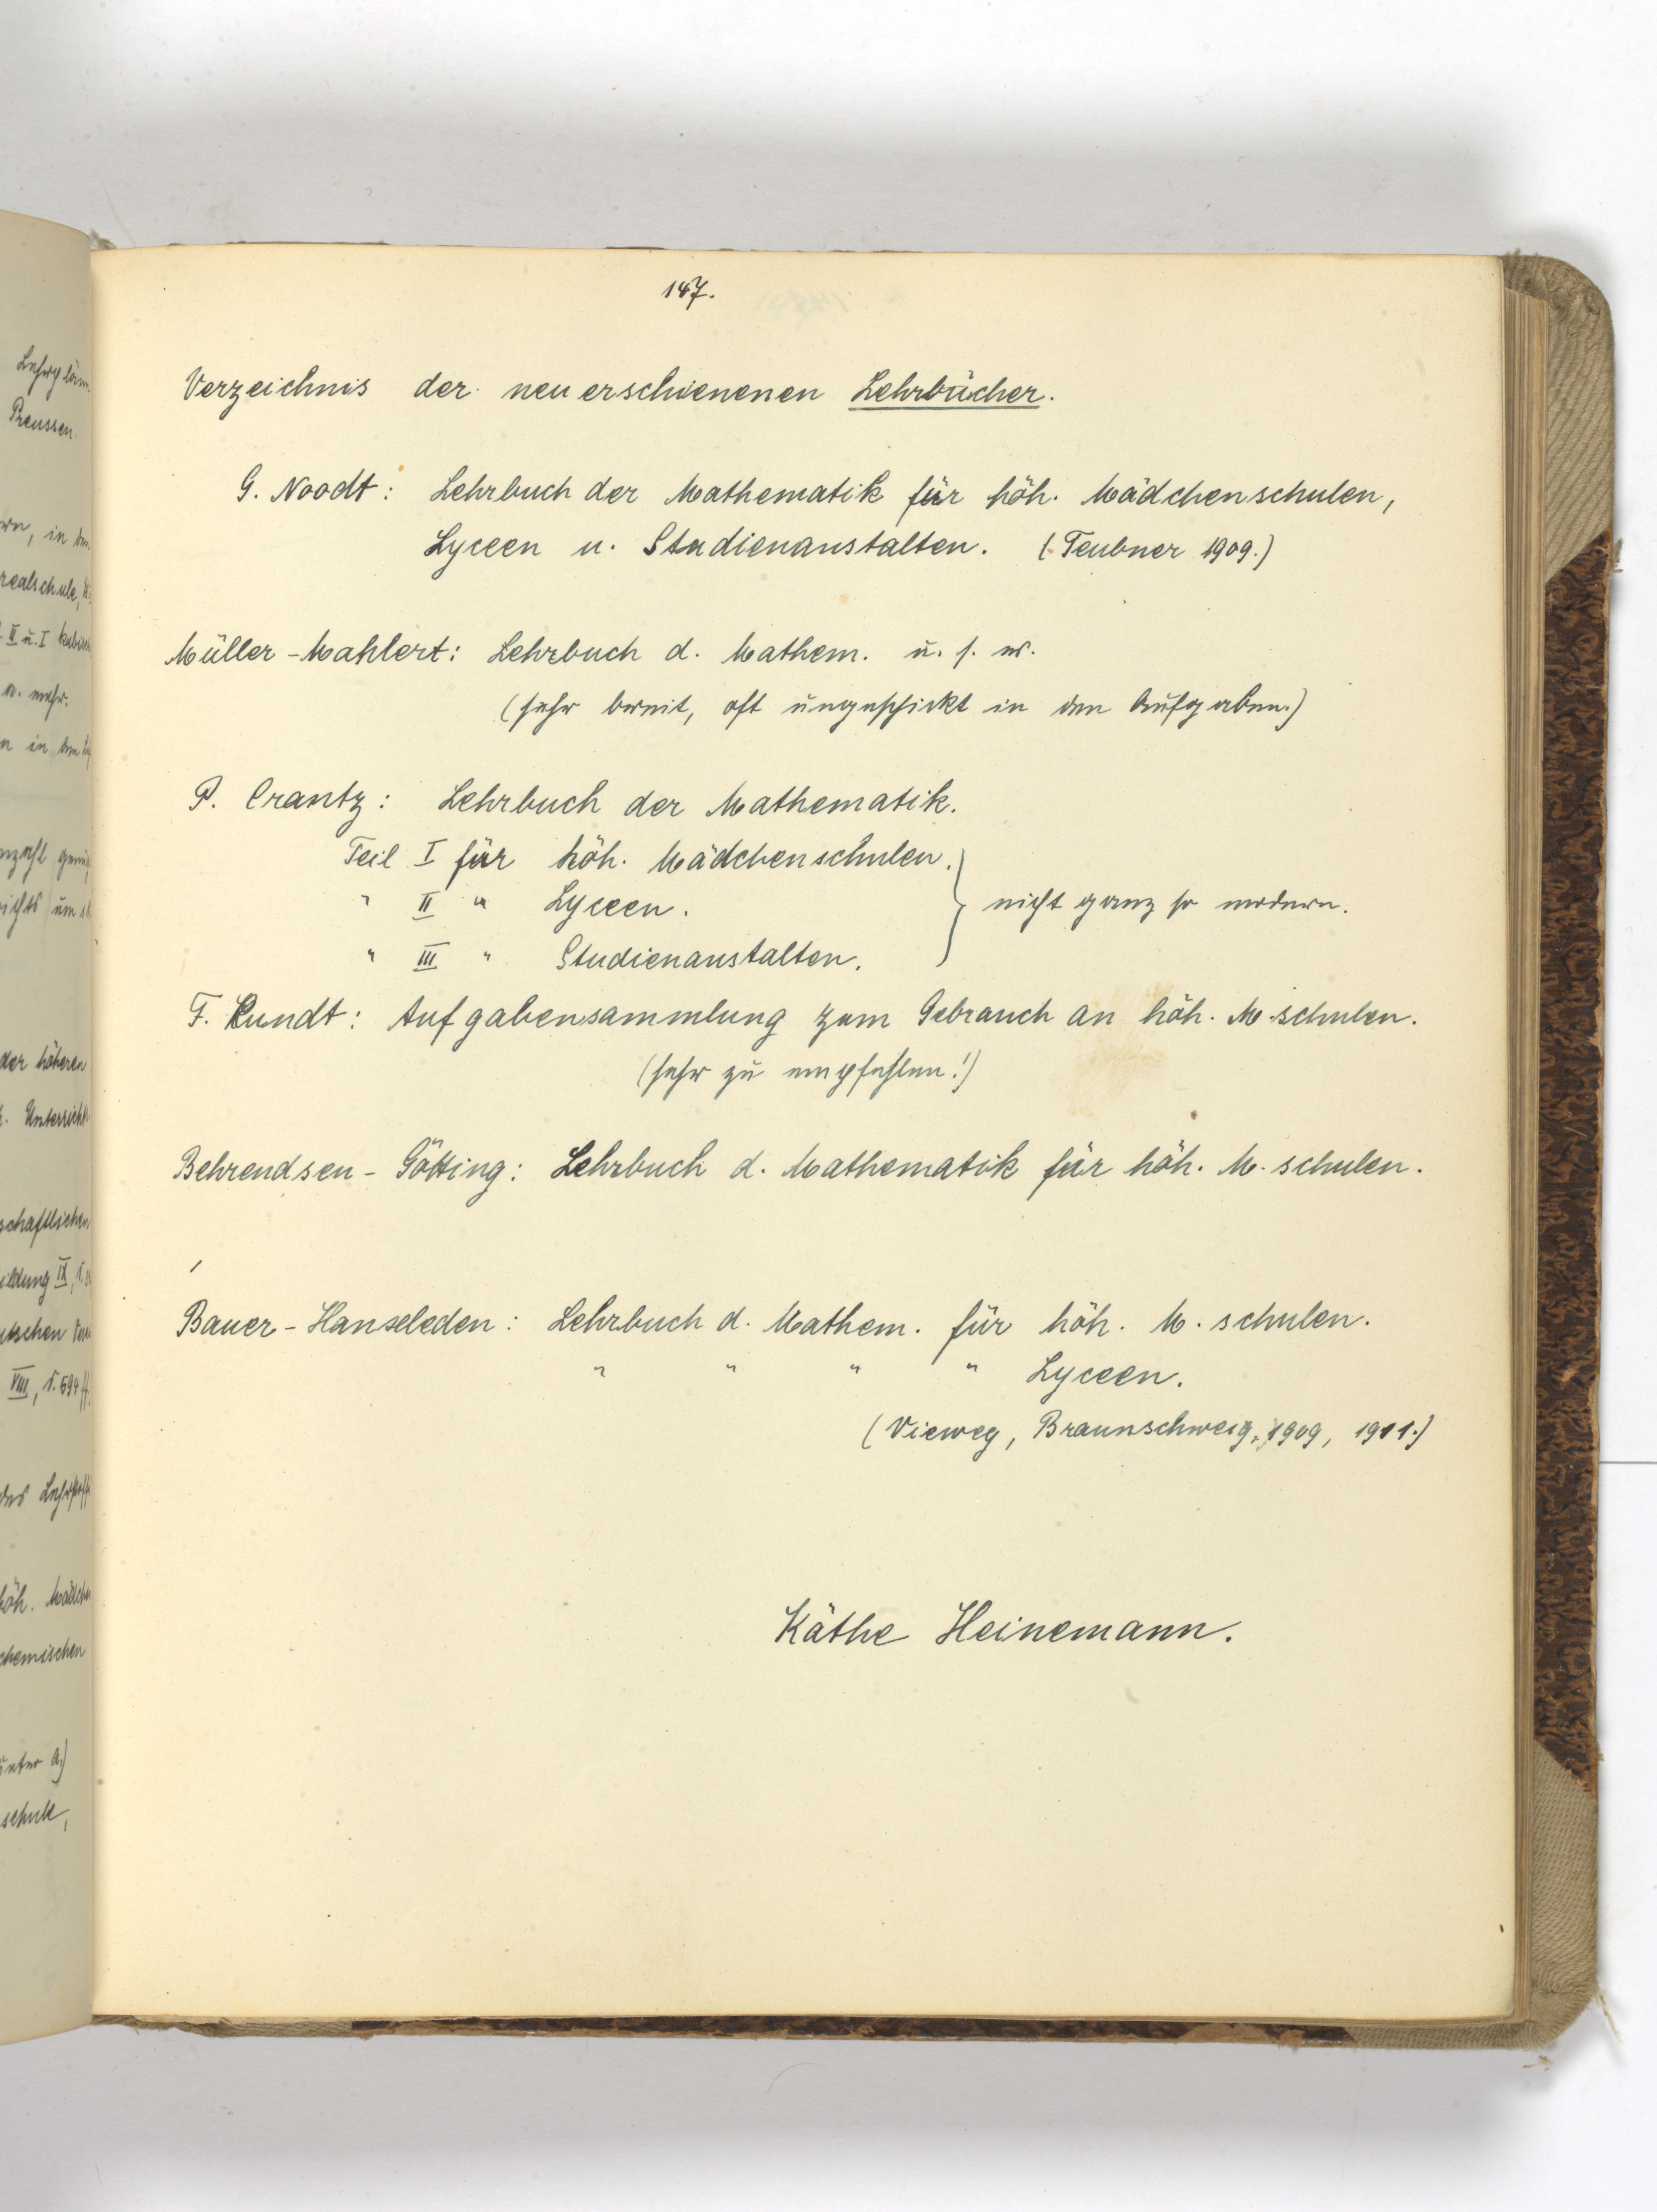 147.
Verzeichnis der neuerschienenen Lehrbücher.
G. Noodt: Lehrbuch der Mathematik für höh. Mädchenschulen,
Lyceen u. Studienanstalten. (Teubner 1909.)
Müller-Mahlert: Lehrbuch d. Mathem. u. s. w.
(sehr breit, oft ungeschickt in den Aufgaben.)
P. Crantz: Lehrbuch der Mathematik.
Teil I für höh. Mädchenschulen.
" II " Lyceen. } nicht ganz so modern.
" III " Studienanstalten.
F. Kundt: Aufgabensammlung zum Gebrauch an höh. M.schulen.
(sehr zu empfehlen!)
Behrendsen-Götting: Lehrbuch d. Mathematik für höh. M.schulen.
Bauer-Hanseleden: Lehrbuch d. Mathem. für höh. M.schulen.
" " " " Lyceen.
(Vieweg, Braunschweig, 1909, 1911.)
Käthe Heinemann.
Preussen.
realschule,
u. mehr.
der höheren
Unterricht
schaftlichen
VIII, S. 594 ff.
höh.
chemischen
unter a)
schule,